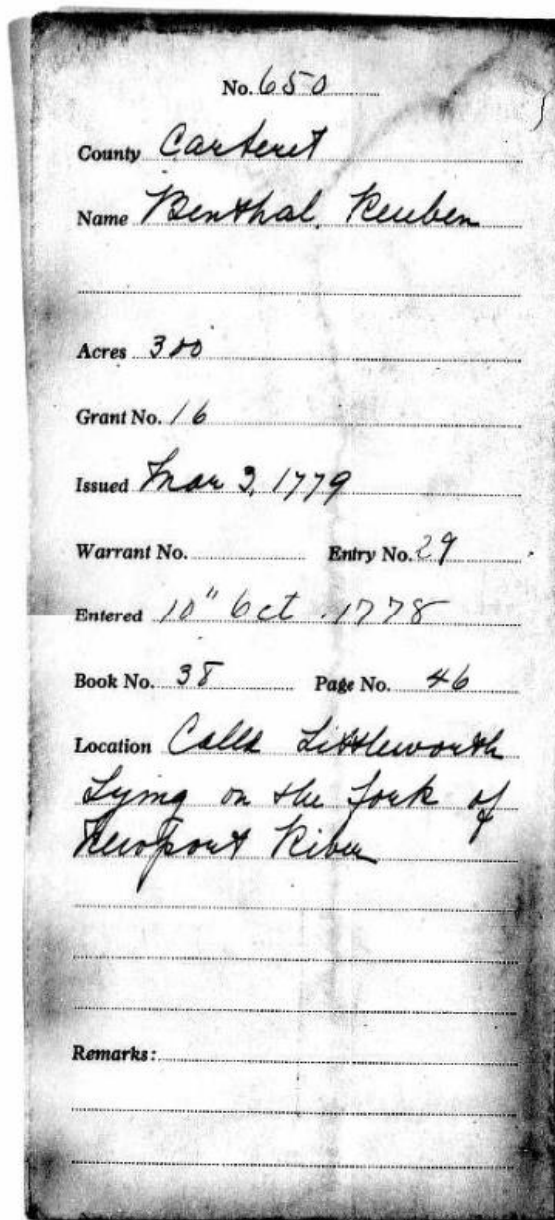 No. 650
County Carteret
Name Benthal, Reuben
Acres 300
Grant No. 16
Issued Mar 3, 1779
Warrant No. Entry No. 29
Entered 10" Oct. 1778
Book No. 38 Page No. 46
Location Calld Littleworth
Lying on the fork of
Newport River
Remarks: